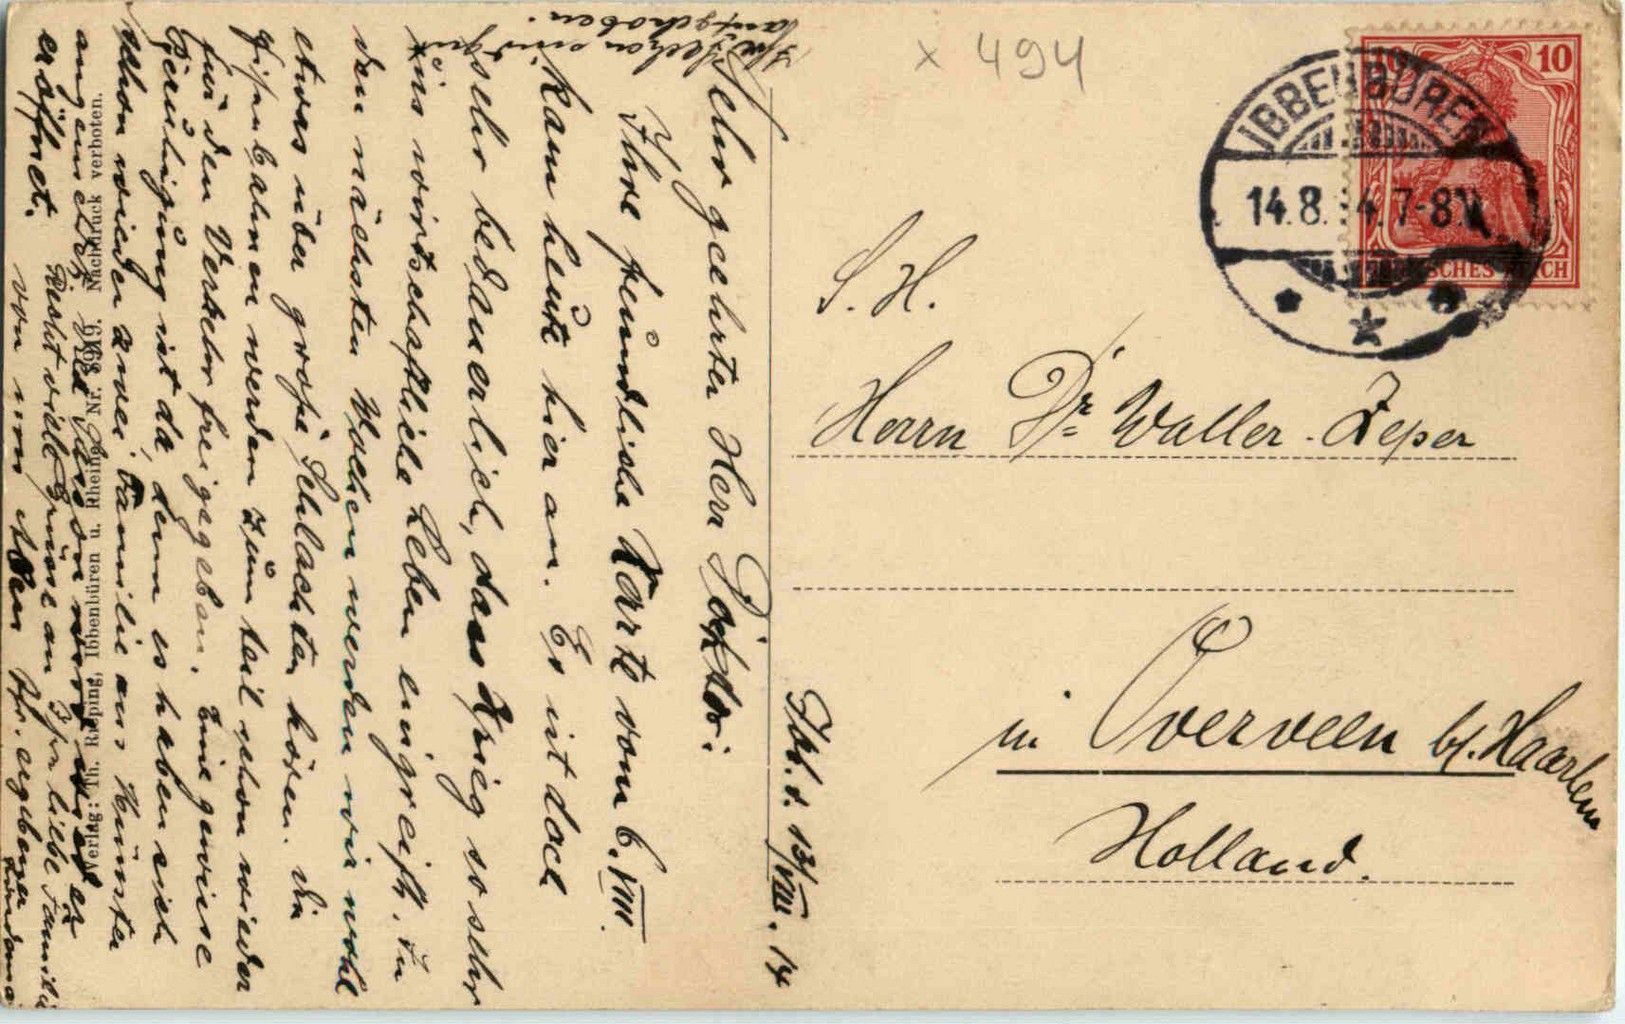 Ibb. d. 13/VIII. 14
Sehr geehrter Herr Doktor!
Ihre freundliche Karte vom 6. VIII.
kam heute hier an. Es ist doch
sehr bedauerlich, dass Krieg so sehr
ins wirtschaftliche Leben eingreift. In
den nächsten Wochen werden wir wohl
etwas über große Schlachten hören. Die
Eisenbahnen werden zum teil schon wieder
für den Verkehr freigegeben. Eine gewisse
Beruhigung ist da, denn es haben sich
schon wieder zwei Familie aus Münster
angemeldet. Die Saison wird
eröffnet. Recht viele Grüsse an Ihre liebe Familie
von mir Ihr ergebener
Verlag: Th. Rieping, Ibbenbüren u. Rheine. Nr. 8919. Nachdruck verboten.
x 494
IBBENBÜREN
14.8.14.7-8.V
10
DEUTSCHES REICH
S. H.
Herrn Dr Waller-Zeper
in Overveen bf. Haarlem
Holland.